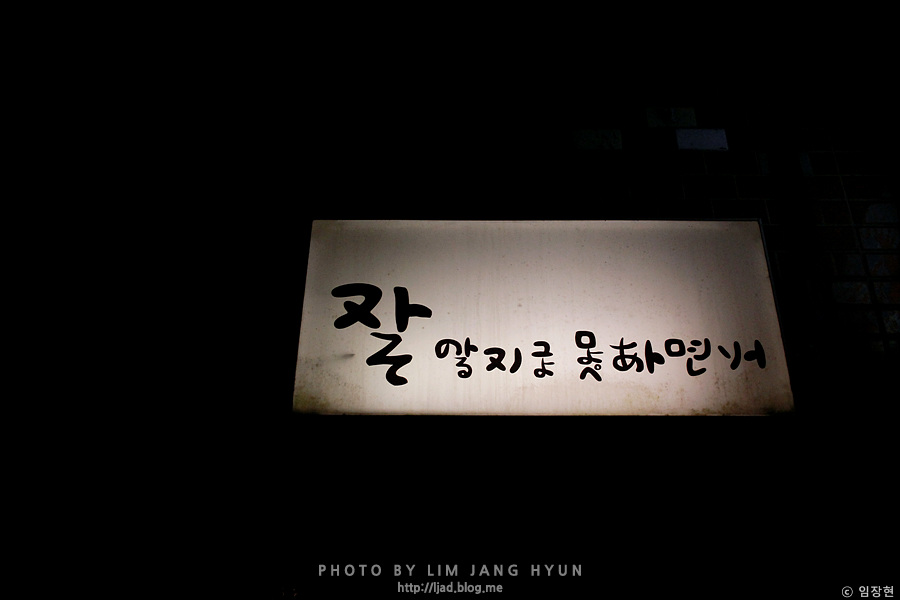 잘 알지도 못하면서
PHOTO BY LIM JANG HYUN
http://ljad.blog.me
ⓒ 임장현